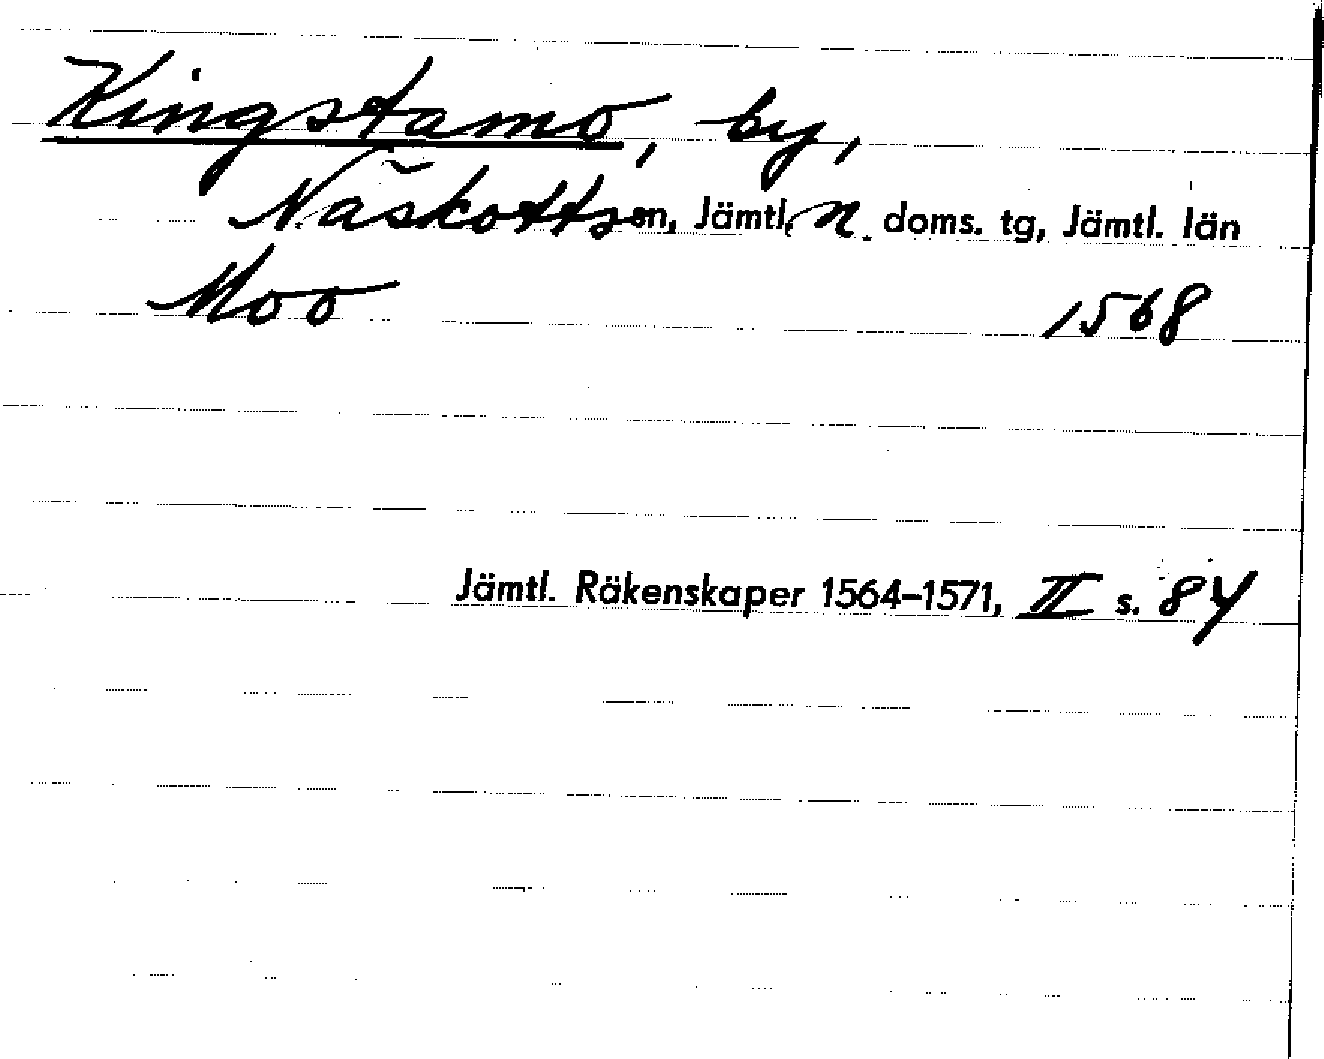 Kingstamo, by,
Näskotts sn, Jämtl. n. doms. tg, Jämtl. län
Moo 1568
Jämtl. Räkenskaper 1564–1571, II s. 84